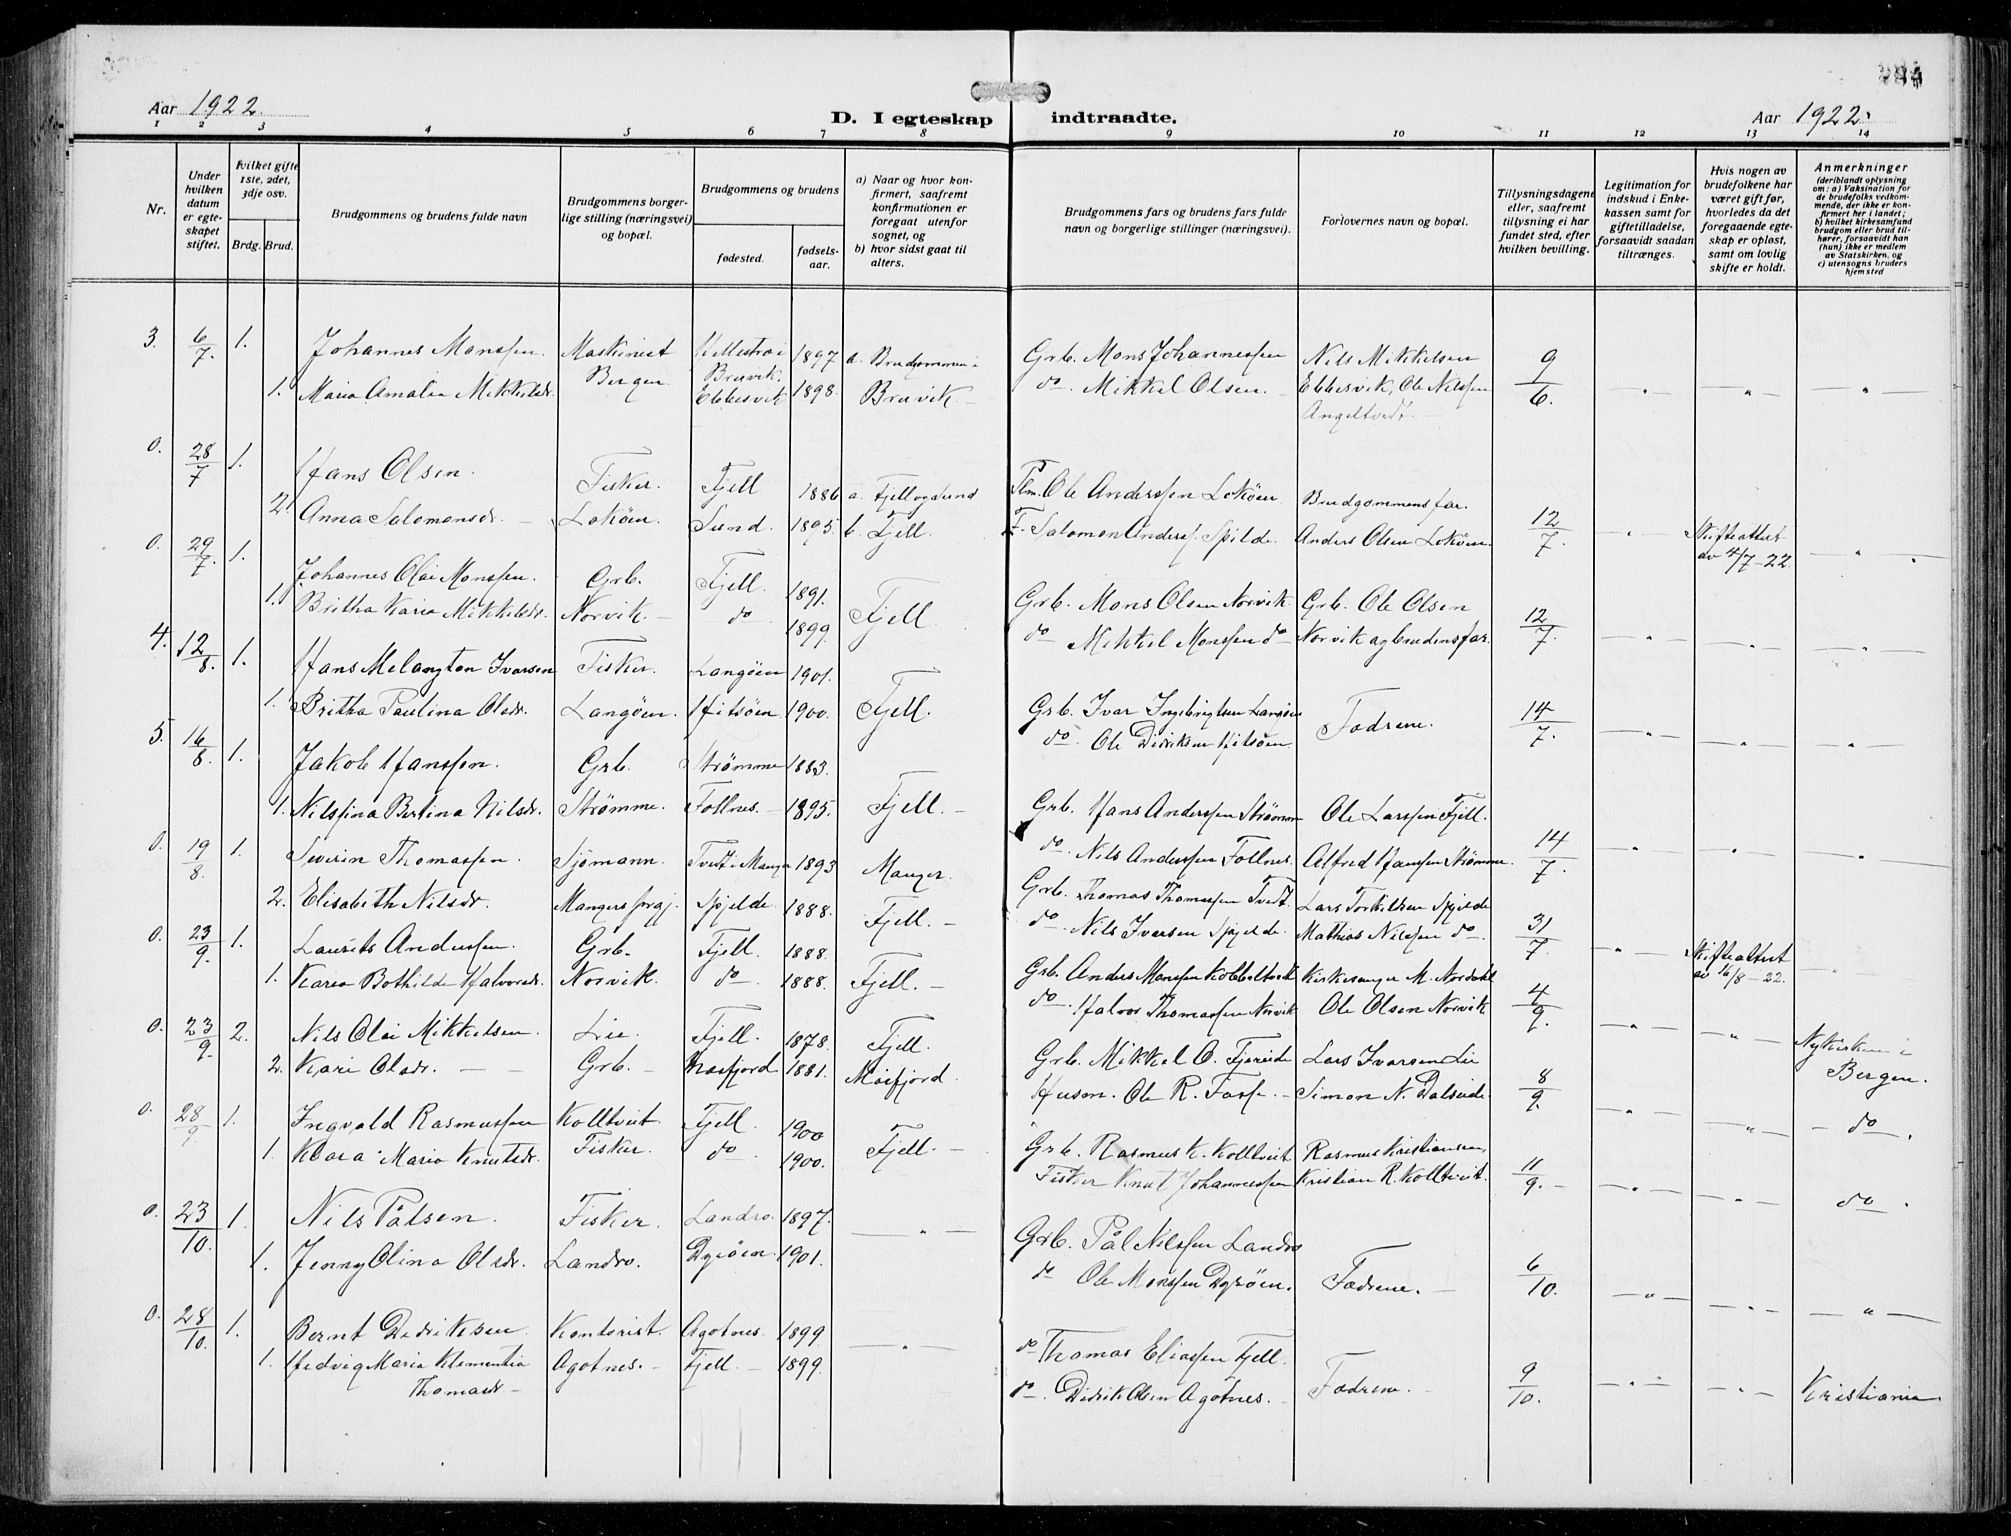 Aar 1922.
D. I egteskap indtraadte.
Aar 1922.
1 2 3 4 5 6 7 8 9 10 11 12 13 14
Nr.
Under hvilken datum er egteskapet stiftet.
Hvilket gifte 1ste, 2det, 3dje osv.
Brdg. Brud.
Brudgommens og brudens fulde navn
Brudgommens borgerlige stilling (næringsvei) og bopæl.
Brudgommens og brudens
fødested.
fødselsaar.
a) Naar og hvor konfirmert, saafremt konfirmationen er foregaat utenfor sognet, og
b) hvor sidst gaat til alters.
Brudgommens fars og brudens fars fulde navn og borgerlige stillinger (næringsvei).
Forlovernes navn og bopæl.
Tillysningsdagene eller, saafremt tillysning ei har fundet sted, efter hvilken bevilling.
Legitimation for indskud i Enkekassen samt for giftetilladelse, forsaavidt saadan tiltrænges.
Hvis nogen av brudefolkene har været gift før, hvorledes da det foregaaende egteskap er opløst, samt om lovlig skifte er holdt.
Anmerkninger (deriblandt oplysning om: a) Vaksination for de brudefolks vedkommende, der ikke er konfirmert her i landet; b) hvilket kirkesamfund brudgom eller brud tilhører, forsaavidt han (hun) ikke er medlem av Statskirken, og c) utensogns bruders hjemsted
3. 6/7 1. Johannes Monssen. Maskinist 1897 a. Brudgommen i Grb. Mons Johannessen Nils Mikkelsen 9/6.
1. Maria Amalia Mikkelsdr. Bergen. Bruvik. Ebbesvik 1898. Bruvik — do. Mikkel Olsen. — Ebbesvik, Ole Nilssen Angeltvedt. — — " — — " — — " —
0. 28/7 1. Hans Olsen. Fisker. Fjell 1886 a. Fjell og Sund Ole Anderssen Lokøen Brudgommens far. 12/7.
2. Anna Salomonsdr. — Lokøen. Sund. 1895. b. Fjell. F. Salomon Anderss. Spilde. Anders Olsen Lokøen. — " — Skifteattest av 4/7-22. — " —
0. 29/7 1. Johannes Olai Monssen. Grb. Fjell 1891. Fjell Grb. Mons Olsen Norvik. Grb. Ole Olsen 12/7.
1. Britha Karia Mikkelsdr. Norvik. — do 1899. do Mikkel Monssen do — Norvik og brudens far. — " — — " — — " —
4. 12/8. 1. Hans Melangton Ivarsen Fisker. Langøen 1901. Grb. Ivar Ingebrigtsen Langøen Fædrene. 14/7.
1. Britha Paulina Olsdr. Langøen. Hitsøen 1900. Fjell. do. Ole Didriksen Hitsøen. — " — — " — — " —
5. 16/8. 1. Jakob Hanssen. Grb. Strømme 1883. Grb. Hans Anderssen Strømme Ole Larssen Fjell.
1. Nilssina Bertina Nilsdr. Strømme. Follnes. — 1895. Fjell. — do. Nils Anderssen Follnes. Alfred Hanssen Strømme. 14/7. — " — — " — — " —
0. 19/8. 1. Severin Thomassen. Sjømann. Tvedt i Manger 1893 Manger. Grb. Thomas Thomassen Tvedt. Lars Torkildsen Spjelde
2. Elisabeth Nilsdr. Mangers prgj. Spjelde 1888. Fjell. — do Nils Iversen Spjelde. Mathias Nilssen do —. 31/7. — " — Skifteattest av 16/8-22.
0. 23/9. 1. Laurits Anderssen. Grb. Fjell. 1888. Grb. Anders Monssen Kobbeltvedt Kirkesanger M. Nordahl 4/9.
1. Karia Bothilde Halvorsdr. Norvik. do 1888. Fjell. — do. Halvor Thomassen Norvik Ole Olsen Norvik — " — — " —
0. 23/9. 2. Nils Olai Mikkelsen. Lie Fjell. 1878. Fjell. Grb. Mikkel O. Fjæreide Lars Ivarsen Lie 8/9. Nykirken i Bergen.
2. Kari Olsdr. — — Grb. — Masfjord 1881. Masfjord. Husm. Ole R. Fosse. — Simon N. Dalseide. — " — — " — — do —.
0. 28/9. 1. Ingvald Rasmussen Kolltveit Fjell. 1900 Grb. Rasmus K. Kolltveit Rasmus Kristiansen, 11/9. —
1. Klara Maria Knutsdr. Fisker. do 1900. Fjell. — Fisker Knut Johannessen Kristian R. Kolltveit. — " — — " — do.
0. 23/10. 1. Nils Pålsen. Fisker. Landro. 1897. — " — Grb. Pål Nilssen Landro
1. Jenny Olina Olsdr. Landro. Dyrøen. 1901. do Ole Monssen Dyrøen. Fædrene. — 6/10. — " — — " — — " —
0. 28/10. 1. Bernt Didriksen. Kontorist. Agotnes. 1899 — " — do Thomas Eliassen Fjell.
1. Hedvig Maria Klementia Thomasdr — Agotnes. — Fjell — 1899. do. Didrik Olsen Agotnes. — Fædrene. — 9/10. — " — — " — Kristiania